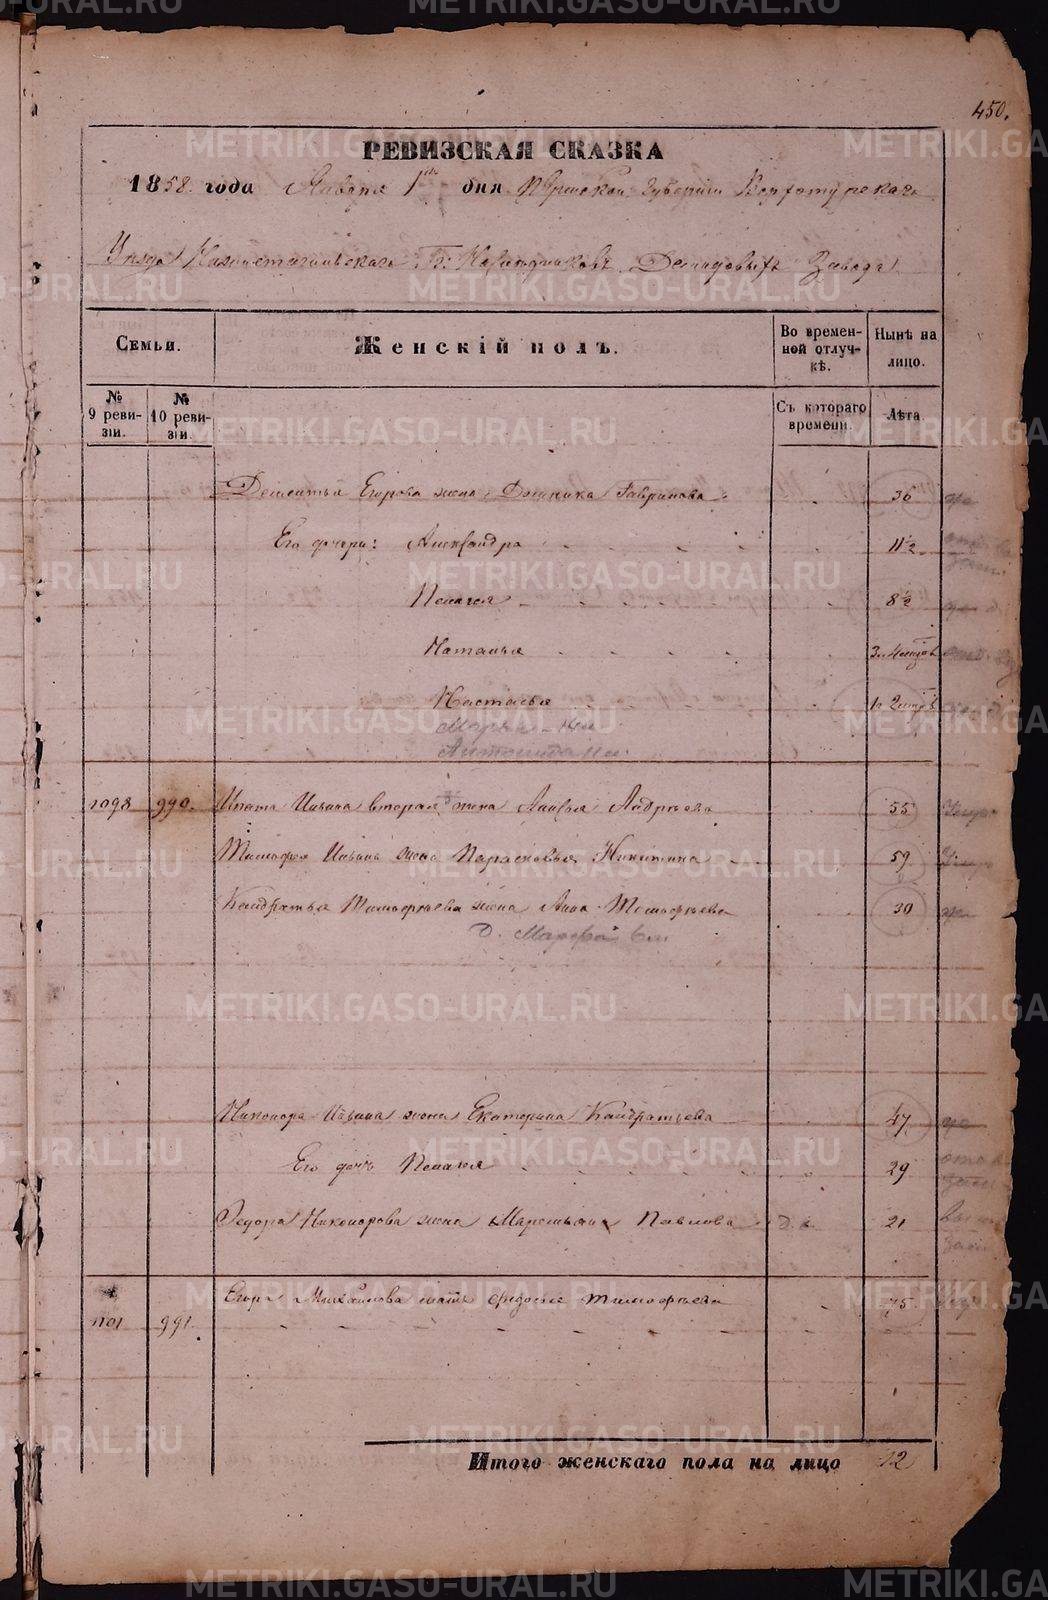 450.
РЕВИЗСКАЯ СКАЗКА
1858. года Января 1го дня Пермской Губернии Верхотурскаго
Уезда Нижнетагильскаго Гг. Наследниковъ Демидовыхъ Завода
Семьи.
Женскій полъ.
Во времен-
ной отлуч-
кѣ.
Нынѣ на
лицо.
№
9 реви-
зіи.
№
10 реви-
зіи.
Съ котораго
времени.
Лѣта.
Дементья Егорова жена Домника Гаврилова 36
Его дочери: Александра 11½
Пелагея 8½
Наталья
Настасья
Марья
Антонида
1098 990. Ипата Ильина вторая жена Анисья Андреева 55
Тимофея Ильина жена Парасковья Никитина 59
Кондратья Тимофеева жена Анна Тимофеева 30
Д. Марфа
Никонора Ильина жена Екатерина Кондратьева 47
Его дочь Пелагея 29
Федора Никонорова жена Маремьяна Павлова 21
1101 991. Егора Михайлова мать Федосья Тимофеева 75
Итого женскаго пола на лицо 12
METRIKI.GASO-URAL.RU